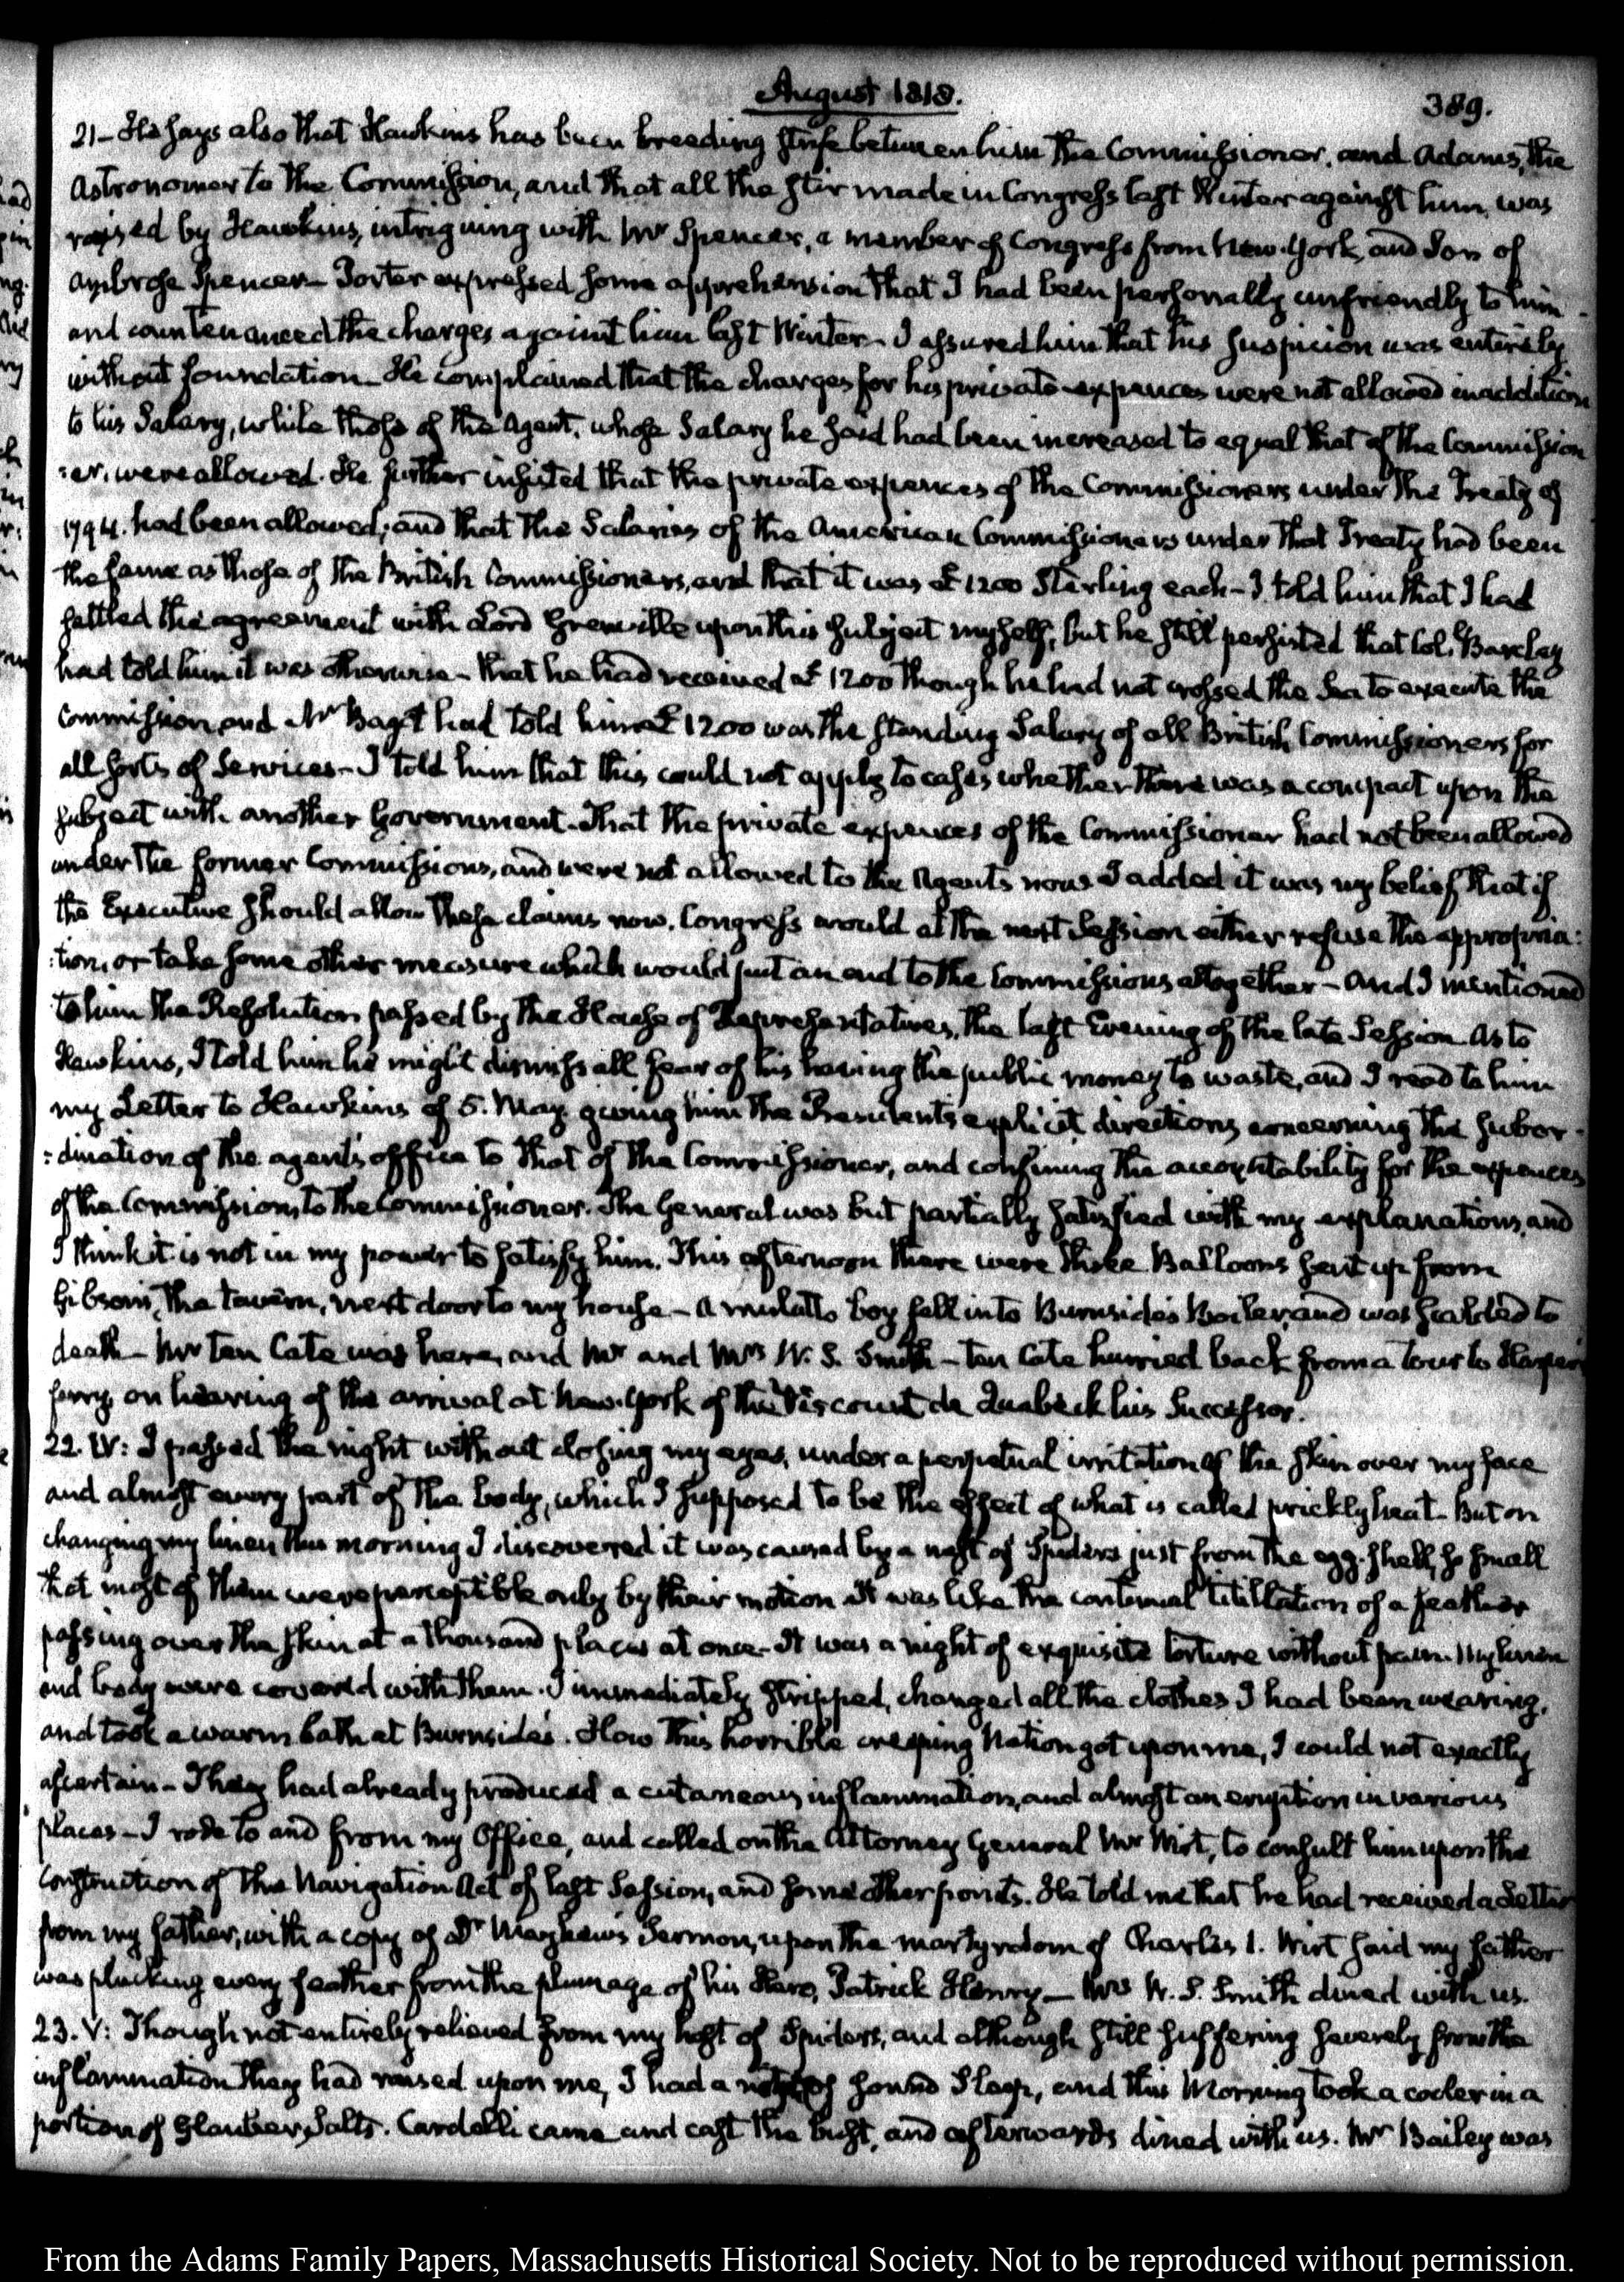 August 1818.
389.
21– He says also that Hawkins has been breeding strife between him the Commissioner, and Adams, the
Astronomer to the Commission, and that all the stir made in Congress last Winter against him, was
raised by Hawkins, intriguing with Mr Spencer, a member of Congress from New-York, and Son of
Ambrose Spencer– Porter expressed some apprehension that I had been personally unfriendly to him
and countenanced the charges against him last Winter– I assured him that his suspicion was entirely
without foundation– He complained that the charges for his private expences were not allowed in addition
to his Salary, while those of the Agent, whose Salary he said had been increased to equal that of the Commission
:er, were allowed. He further insisted that the private expences of the Commissioners under the Treaty of
1794. had been allowed; and that the Salaries of the American Commissioners under that Treaty had been
the same as those of the British Commissioners, and that it was £1200 Sterling each– I told him that I had
settled the agreement with Lord Grenville upon this subject myself, but he still persisted that Col. Barclay
had told him it was otherwise– that he had received £1200 though he had not crossed the Sea to execute the
Commission, and Mr Bagot had told him £1200 was the standing Salary of all British Commissioners for
all sorts of Services– I told him that this could not apply to cases whether there was a compact upon the
subject with another Government. That the private expences of the Commissioner had not been allowed
under the former Commissions, and were not allowed to the Agents now. I added it was my belief that if
the Executive should allow these claims now, Congress would at the next Session either refuse the appropria:
:tion, or take some other measure which would put an end to the Commissions altogether– And I mentioned
to him the Resolution passed by the House of Representatives, the last Evening of the late Session. As to
Hawkins, I told him he might dismiss all fear of his having the public money to waste, and I read to him
my Letter to Hawkins of 5. May. giving him the Presidents explicit directions concerning the subor-
:dination of the agent's office to that of the Commissioner, and confining the accountability for the expences
of the Commission, to the Commissioner. The General was but partially satisfied with my explanations, and
I think it is not in my power to satisfy him. This afternoon there were three Balloons sent up from
Gibson's, the tavern, next door to my house– A mulatto boy fell into Burnside's Boiler, and was scalded to
death– Mr Ten Cate was here, and Mr and Mrs W. S. Smith– Ten Cate hurried back from a tour to Harper's
ferry, on hearing of the arrival at New-York of the Viscount de Quabeck his Successor.
22. IV: I passed the night without closing my eyes, under a perpetual irritation of the skin over my face
and almost every part of the body, which I supposed to be the effect of what is called prickly heat– But on
changing my linen this morning I discovered it was caused by a nest of Spiders just from the egg-shell, so small
that most of them were perceptible only by their motion. It was like the continual titillation of a feather
passing over the skin at a thousand places at once– It was a night of exquisite torture without pain. My linen
and body were covered with them. I immediately stripped, changed all the clothes I had been wearing,
and took a warm bath at Burnside's. How this horrible creeping Nation got upon me, I could not exactly
ascertain– They had already produced a cutaneous inflammation, and almost an eruption in various
places– I rode to and from my Office, and called on the Attorney General Mr Wirt, to consult him upon the
construction of the Navigation Act of last Session, and some other points. He told me that he had received a Letter
from my father, with a copy of Dr Mayhew's Sermon, upon the martyrdom of Charles 1. Wirt said my father
was plucking every feather from the plumage of his Hero, Patrick Henry– Mrs W. S. Smith dined with us.
23. V: Though not entirely relieved from my host of Spiders, and although still suffering severely from the
inflammation they had raised upon me, I had a night of sound Sleep, and this Morning took a cooler in a
portion of Glauber Salts. Cardelli came and cast the bust, and afterwards dined with us. Mr Bailey was
From the Adams Family Papers, Massachusetts Historical Society. Not to be reproduced without permission.